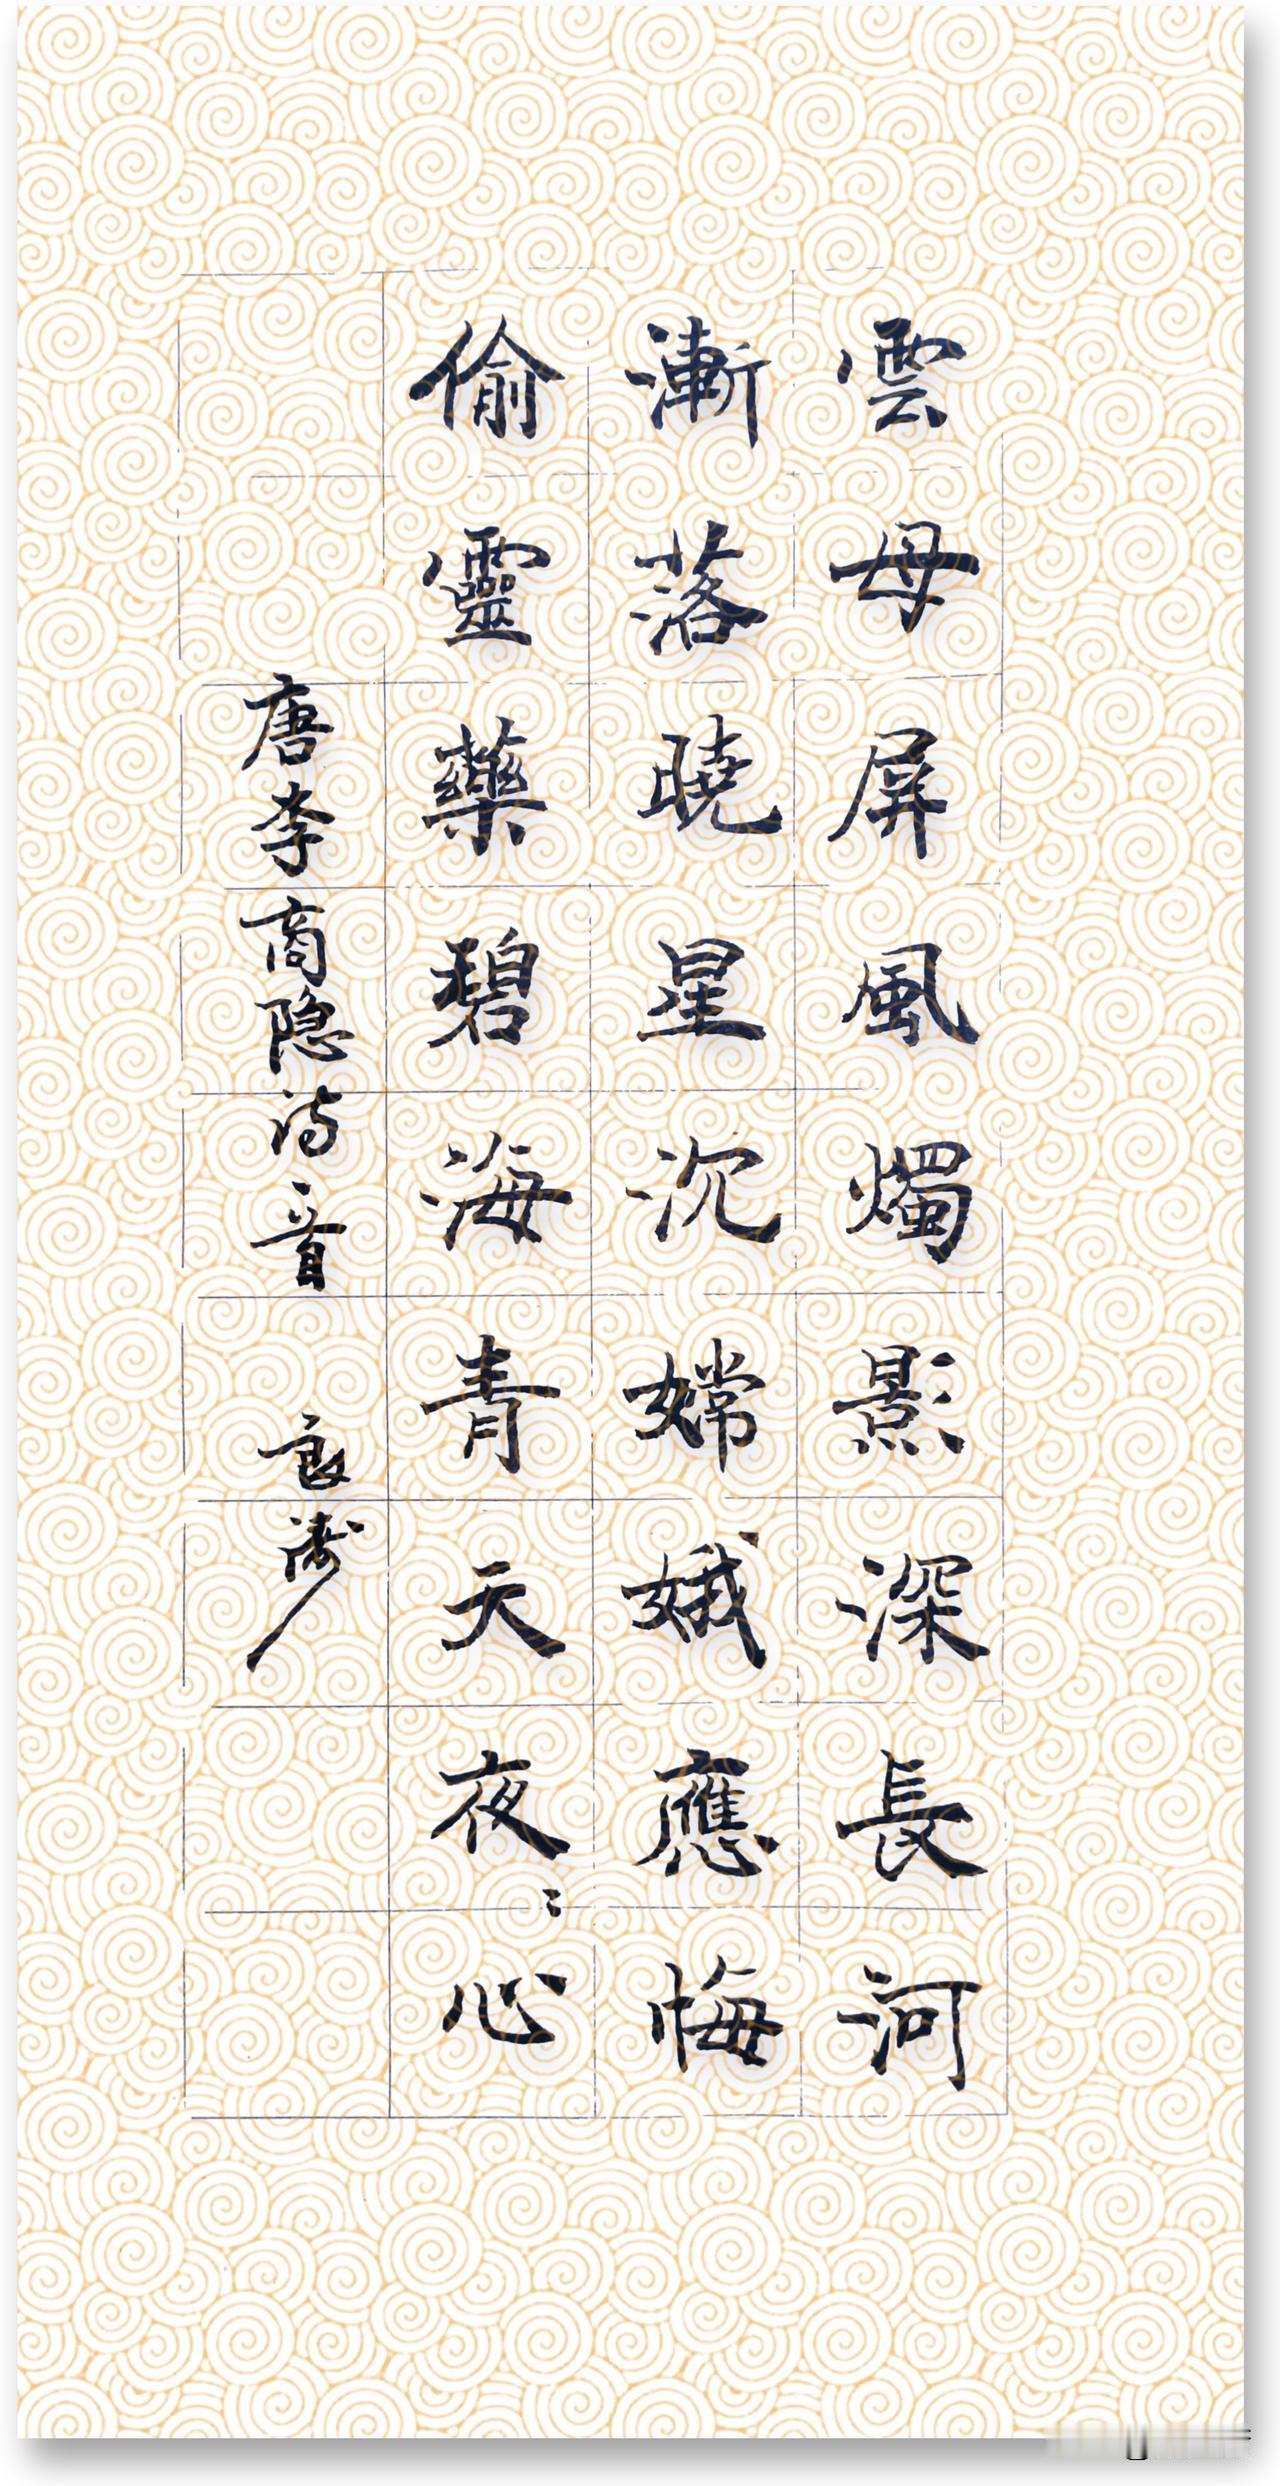 雲母屏風燭影深長河
漸落曉星沉嫦娥應悔
偷靈藥碧海青天夜〻心
唐李商隐诗一首 良濤